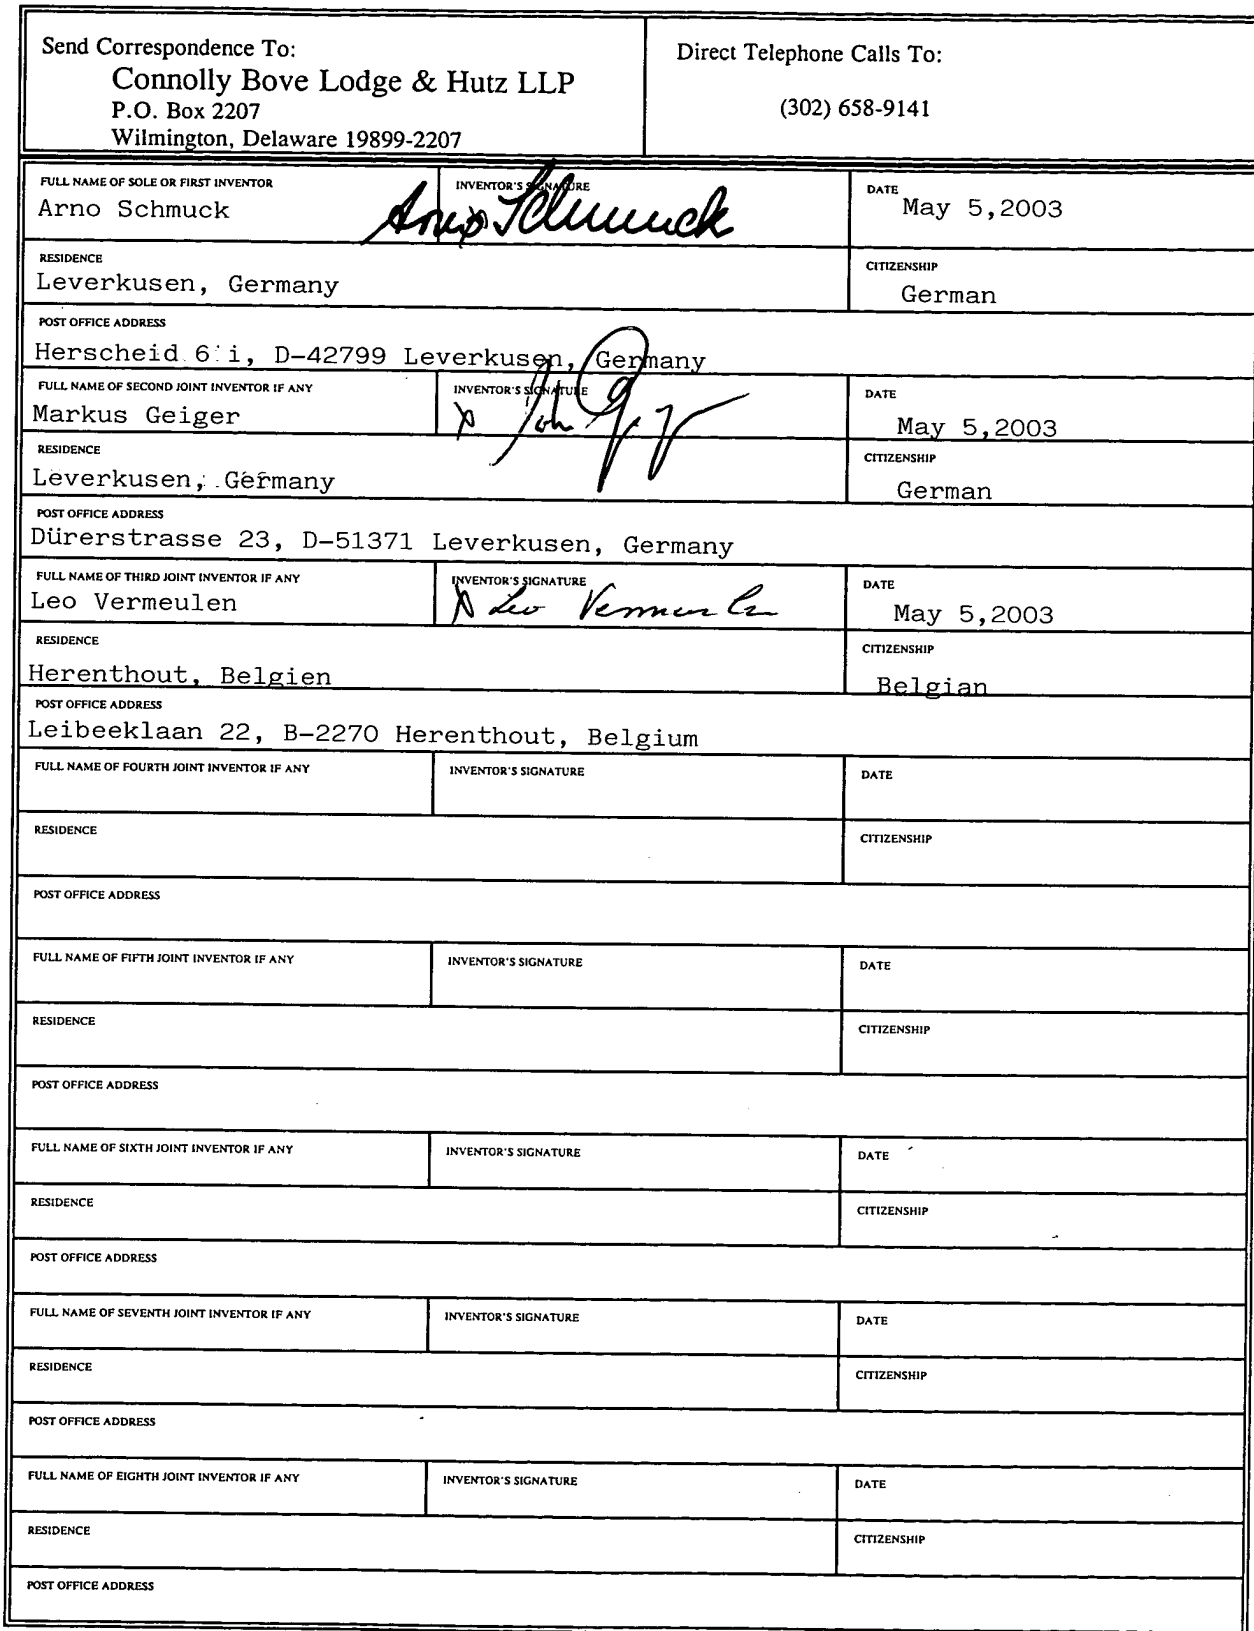 Send Correspondence To:
Connolly Bove Lodge & Hutz LLP
P.O. Box 2207
Wilmington, Delaware 19899-2207
Direct Telephone Calls To:
(302) 658-9141
FULL NAME OF SOLE OR FIRST INVENTOR
Arno Schmuck
INVENTOR'S SIGNATURE
Arno Schmuck
DATE
May 5,2003
RESIDENCE
Leverkusen, Germany
CITIZENSHIP
German
POST OFFICE ADDRESS
Herscheid 6 i, D-42799 Leverkusen, Germany
FULL NAME OF SECOND JOINT INVENTOR IF ANY
Markus Geiger
INVENTOR'S SIGNATURE
X
DATE
May 5,2003
RESIDENCE
Leverkusen, Germany
CITIZENSHIP
German
POST OFFICE ADDRESS
Dürerstrasse 23, D-51371 Leverkusen, Germany
FULL NAME OF THIRD JOINT INVENTOR IF ANY
Leo Vermeulen
INVENTOR'S SIGNATURE
X Leo Vermeulen
DATE
May 5,2003
RESIDENCE
Herenthout, Belgien
CITIZENSHIP
Belgian
POST OFFICE ADDRESS
Leibeeklaan 22, B-2270 Herenthout, Belgium
FULL NAME OF FOURTH JOINT INVENTOR IF ANY
INVENTOR'S SIGNATURE
DATE
RESIDENCE
CITIZENSHIP
POST OFFICE ADDRESS
FULL NAME OF FIFTH JOINT INVENTOR IF ANY
INVENTOR'S SIGNATURE
DATE
RESIDENCE
CITIZENSHIP
POST OFFICE ADDRESS
FULL NAME OF SIXTH JOINT INVENTOR IF ANY
INVENTOR'S SIGNATURE
DATE
RESIDENCE
CITIZENSHIP
POST OFFICE ADDRESS
FULL NAME OF SEVENTH JOINT INVENTOR IF ANY
INVENTOR'S SIGNATURE
DATE
RESIDENCE
CITIZENSHIP
POST OFFICE ADDRESS
FULL NAME OF EIGHTH JOINT INVENTOR IF ANY
INVENTOR'S SIGNATURE
DATE
RESIDENCE
CITIZENSHIP
POST OFFICE ADDRESS